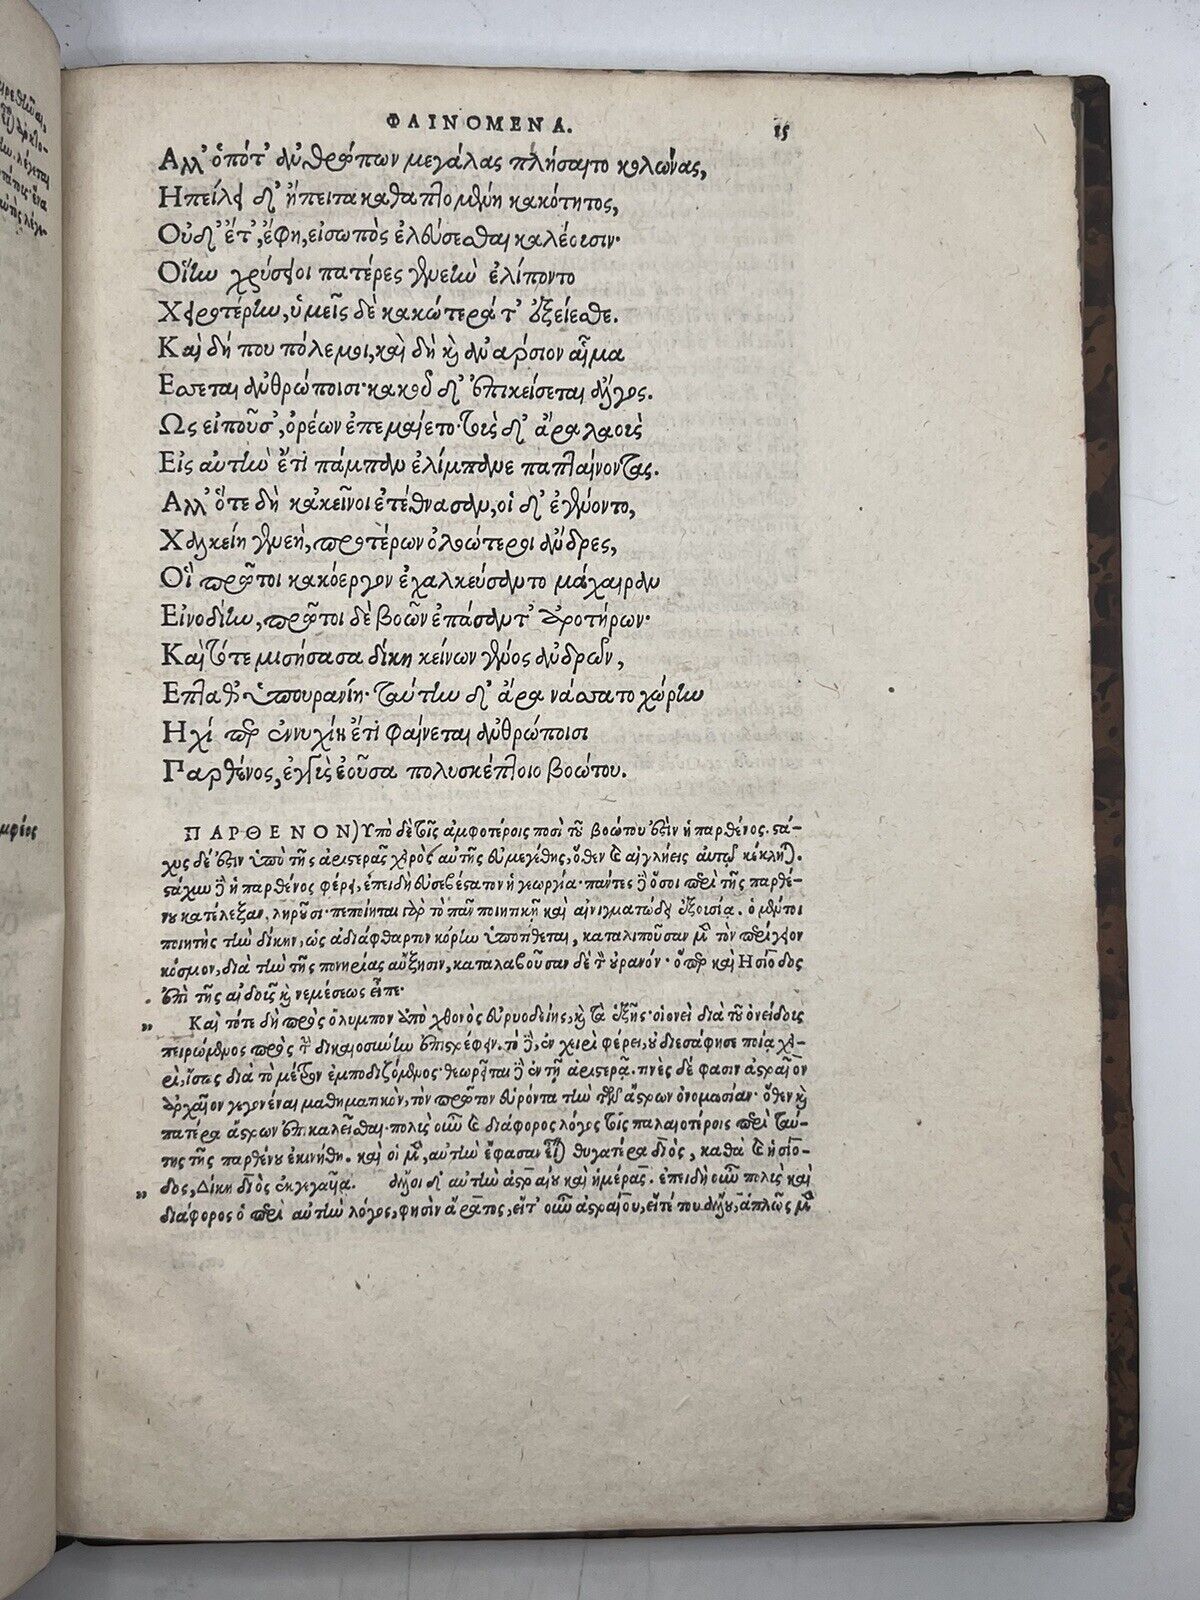 ΦΑΙΝΟΜΕΝΑ. 15
Αλλ' ὁπότ' ἀνθρώπων μεγάλας πλήσαιτο κολώνας,
Ηπείλει δ' ἤπειτα καθαπτομένη κακότητος,
Οὐδ' ἔτ', ἔφη, εἰσωπὸς ἐλεύσεσθαι καλέουσιν·
Οἵην χρύσειοι πατέρες γενεὴν ἐλίποντο
Χειροτέρην, ὑμεῖς δὲ κακώτερά τ' ἐξείεσθε.
Καὶ δή που πόλεμοι, καὶ δὴ καὶ ἀνάρσιον αἷμα
Εσσεται ἀνθρώποισι· κακοῦ δ' ἐπικείσεται ἄλγος.
Ως εἰποῦσ', ὀρέων ἐπεμαίετο· τοὺς δ' ἄρα λαοὺς
Εἰς αὐτὴν ἔτι πάμπαν ἐλίμπανε παπταίνοντας.
Αλλ' ὅτε δὴ κᾀκεῖνοι ἐτέθνασαν, οἱ δ' ἐγένοντο,
Χαλκείη γενεὴ, προτέρων ὀλοώτεροι ἄνδρες,
Οἳ πρῶτοι κακόεργον ἐχαλκεύσαντο μάχαιραν
Εἰνοδίην, πρῶτοι δὲ βοῶν ἐπάσαντ' ἀροτήρων·
Καὶ τότε μισήσασα δίκη κείνων γένος ἀνδρῶν,
Επταθ' ὑπουρανίη· ταύτην δ' ἄρα νάσσατο χώρην
Ηχί περ ἐννυχίη ἔτι φαίνεται ἀνθρώποισι
Παρθένος, ἐγγὺς ἐοῦσα πολυσκέπτοιο βοώτου.
ΠΑΡΘΕΝΟΝ) Υπὸ δὲ τοῖς ἀμφοτέροις ποσὶ τοῦ βοώτου ἐστὶν ἡ παρθένος. στά-
χυς δέ ἐστιν ὑπὸ τῆς ἀριστερᾶς χειρὸς αὐτῆς εὐμεγέθης, ὅθεν καὶ αἰγλήεις αὐτῷ κέκληται.
στάχυν γὰρ ἡ παρθένος φέρει, ἐπειδὴ εὐσεβέστατον ἡ γεωργία· πάντες γὰρ ὅσοι περὶ τῆς παρθέ-
νου κατέλεξαν, ληροῦσι· πεποίηται γὰρ τὸ πᾶν ποιητικῇ καὶ αἰνιγματώδει ἐξουσίᾳ. ὁ μέντοι
ποιητὴς τὴν δίκην, ὡς ἀδιάφθαρτον κόρην ὑποτίθεται, καταλιποῦσαν μὲν τὸν περίγειον
κόσμον, διὰ τὴν τῆς πονηρίας αὔξησιν, καταλαβοῦσαν δὲ τὸν οὐρανόν· ὅπερ καὶ Ησίοδος
ἐπὶ τῆς αἰδοῦς καὶ νεμέσεως εἶπε·
„ Καὶ τότε δὴ πρὸς ὄλυμπον ἀπὸ χθονὸς εὐρυοδείης, καὶ τὰ ἑξῆς· οἱονεὶ διὰ τοῦ ὀνείδους
πειρώμενος πρὸς τὴν δικαιοσύνην ἐπιστρέφειν. τὸ γὰρ, ἐν χειρὶ φέρει, οὐ διεσάφησε ποίᾳ χει-
ρὶ, ἴσως διὰ τὸ μέτρον ἐμποδιζόμενος· θεωρεῖται γὰρ ἐν τῇ ἀριστερᾷ. τινὲς δέ φασιν ἀστραῖον
ἀρχαῖον γεγονέναι μαθηματικὸν, τὸν πρῶτον εὑρόντα τὴν τῶν ἄστρων ὀνομασίαν· ὅθεν καὶ
πατέρα ἄστρων ἐπικαλεῖσθαι· πολὺς οὖν καὶ διάφορος λόγος τοῖς παλαιοτέροις περὶ ταύ-
της τῆς παρθένου ἐκινήθη. καὶ οἱ μὲν, αὐτὴν ἔφασαν εἶναι θυγατέρα διὸς, καθὰ καὶ ἡσίο-
„ δος, Δίκη διὸς ἐκγεγαῦα. ἄλλοι δ' αὐτὴν ἀστραίου καὶ ἡμέρας. ἐπειδὴ οὖν πολὺς καὶ
διάφορος ὁ περὶ αὐτὴν λόγος, φησὶν ἄρατος, εἴτ' οὖν ἀστραίου, εἴτε του ἄλλου, ἁπλῶς μὲν